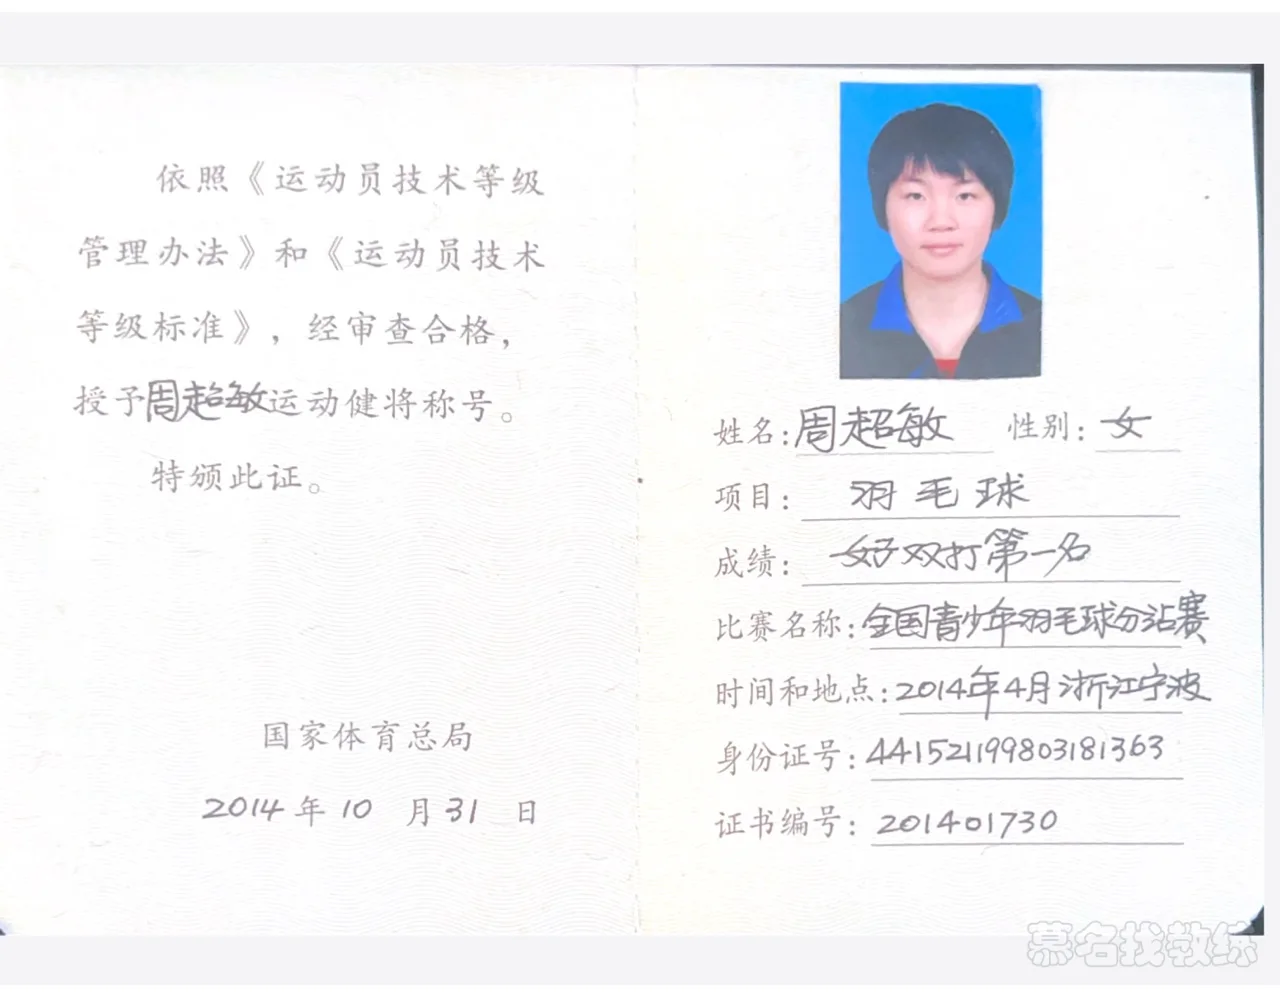 依照《运动员技术等级
管理办法》和《运动员技术
等级标准》，经审查合格，
授予周超敏运动健将称号。
特颁此证。
国家体育总局
2014年10月31日
姓名：周超敏 性别：女
项目：羽毛球
成绩：女子双打第一名
比赛名称：全国青少年羽毛球分站赛
时间和地点：2014年4月浙江宁波
身份证号：441521199803181363
证书编号：201401730
慕名找教练